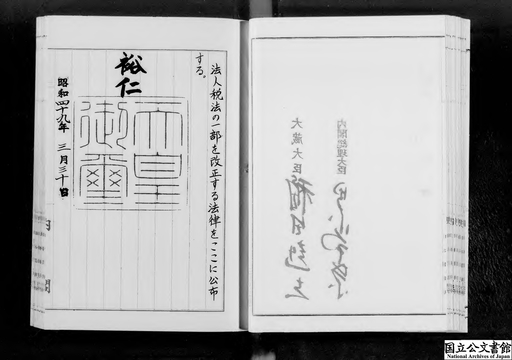 法人税法の一部を改正する法律をここに公布
する。
裕仁
天皇
御璽
昭和四十九年 三月三十日
内閣総理大臣
大蔵大臣
国立公文書館
National Archives of Japan